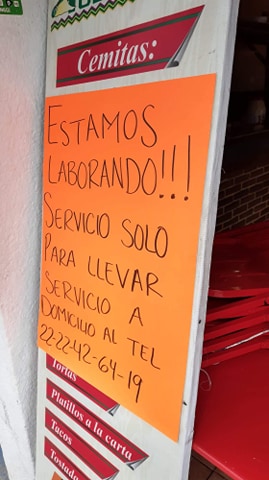 Cemitas:
ESTAMOS
LABORANDO!!!
SERVICIO SOLO
PARA LLEVAR
SERVICIO A
DOMICILIO AL TEL
22-22-42-64-19
Tortas
Platillos a la carta
Tacos
Tostadas